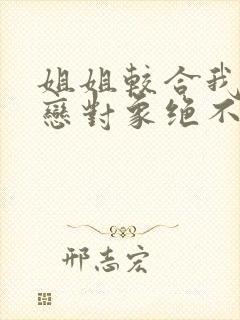 姐姐較合我
戀對象绝不
邢志宏